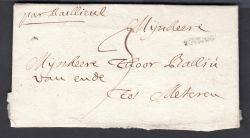 par Bailleul
Mijnheere
Mijnheere Thoor Baelliu
van ende
tot Meteren